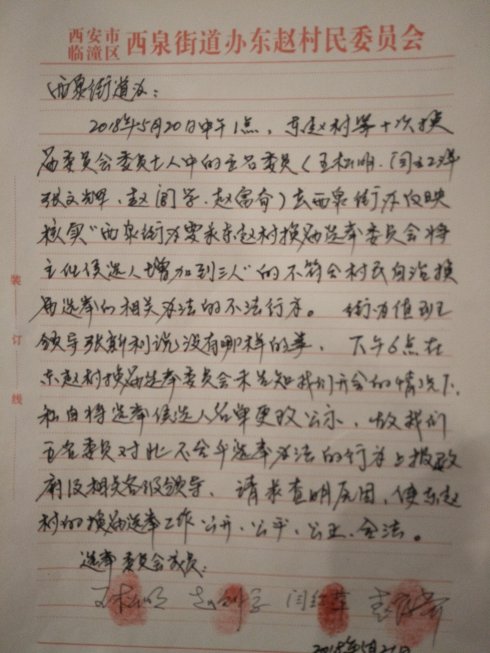 西安市临潼区 西泉街道办东赵村民委员会
西泉街道办：
2018年5月20日中午1点，东赵村第十次换
届委员会委员七人中的五名委员（王松明、闫红
张文辉、赵阎学、赵富奇）去西泉街办反映
核实“西泉街办要求东赵村换届选举委员会将
主任候选人增加到三人”的不符合村民自治换
届选举的相关办法的不法行为。街办值班
领导张新利说没有哪样的事，下午6点在
东赵村换届选举委员会未告知我们开会的情况下，
私自将选举候选人名单更改公示，故我们
五名委员对此不合乎选举办法的行为上报政
府及相关各级领导，请求查明原因，使东赵
村的换届选举工作公开、公平、公正、合法。
选举委员会成员：
王松明
2018年5月21日
装订线